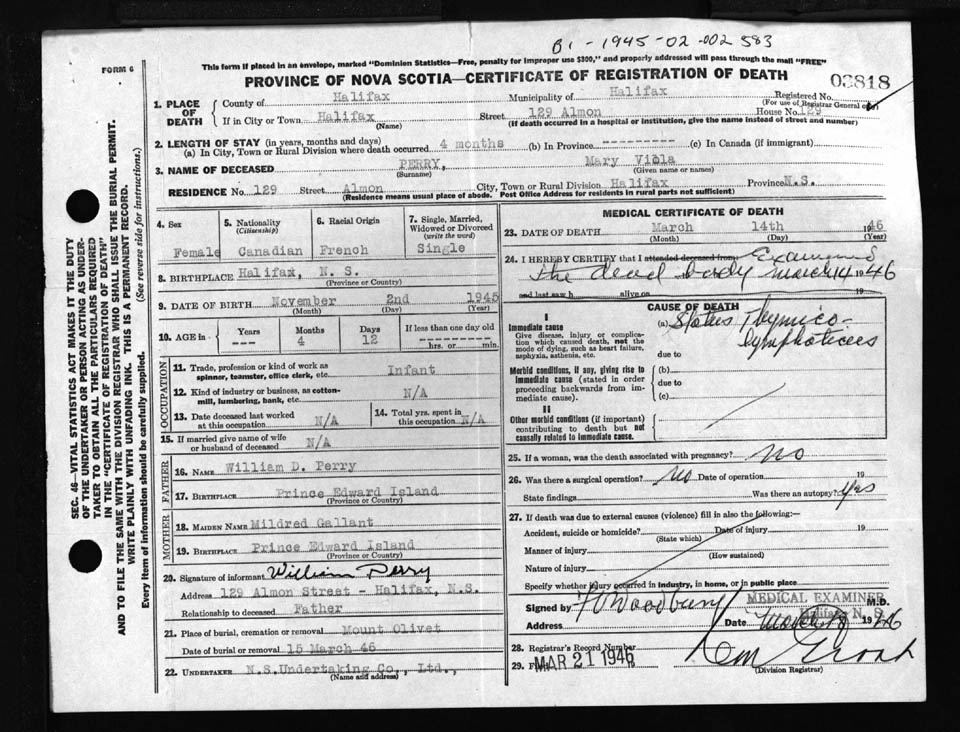 B1-1945-02-002583
FORM 6
This form if placed in an envelope, marked "Dominion Statistics—Free, penalty for improper use $300," and properly addressed will pass through the mail "FREE"
PROVINCE OF NOVA SCOTIA—CERTIFICATE OF REGISTRATION OF DEATH
03818
1. PLACE OF DEATH
County of Halifax Municipality of Halifax Registered No.
(For use of Registrar General only)
If in City or Town Halifax Street 129 Almon House No. 129
(Name) (If death occurred in a hospital or institution, give the name instead of street and number)
2. LENGTH OF STAY (in years, months and days)
(a) In City, Town or Rural Division where death occurred 4 months (b) In Province --------- (c) In Canada (if immigrant)
3. NAME OF DECEASED PERRY, Mary Viola
(Surname) (Given name or names)
RESIDENCE No. 129 Street Almon City, Town or Rural Division Halifax Province N.S.
(Residence means usual place of abode. Post Office Address for residents in rural parts not sufficient)
4. Sex 5. Nationality (Citizenship) 6. Racial Origin 7. Single, Married, Widowed or Divorced (write the word)
Female Canadian French Single
8. BIRTHPLACE Halifax, N. S.
(Province or Country)
9. DATE OF BIRTH November 2nd 1945
(Month) (Day) (Year)
10. AGE in - Years Months Days If less than one day old
--- 4 12 --------- hrs. or min.
OCCUPATION
11. Trade, profession or kind of work as spinner, teamster, office clerk, etc. Infant
12. Kind of industry or business, as cotton-mill, lumbering, bank, etc. N/A
13. Date deceased last worked at this occupation N/A 14. Total yrs. spent in this occupation N/A
15. If married give name of wife or husband of deceased N/A
FATHER
16. NAME William D. Perry
17. BIRTHPLACE Prince Edward Island
(Province or Country)
MOTHER
18. MAIDEN NAME Mildred Gallant
19. BIRTHPLACE Prince Edward Island
(Province or Country)
20. Signature of informant William Perry
Address 129 Almon Street - Halifax, N.S.
Relationship to deceased Father
21. Place of burial, cremation or removal Mount Olivet
Date of burial or removal 15 March 46
22. UNDERTAKER N.S.Undertaking Co., Ltd.,
(Name and address)
MEDICAL CERTIFICATE OF DEATH
23. DATE OF DEATH March 14th 1946
(Month) (Day) (Year)
24. I HEREBY CERTIFY that I attended deceased from Examined
the dead body March 14 1946
and last saw h alive on 19
CAUSE OF DEATH
I
Immediate cause (a) Status Thymico-
Give disease, injury or complication which caused death, not the mode of dying, such as heart failure, asphyxia, asthenia, etc. lymphaticus
due to
Morbid conditions, if any, giving rise to immediate cause (stated in order proceeding backwards from immediate cause). (b)
due to
(c)
II
Other morbid conditions (if important) contributing to death but not causally related to immediate cause.
25. If a woman, was the death associated with pregnancy? no
26. Was there a surgical operation? no Date of operation 19
State findings Was there an autopsy? yes
27. If death was due to external causes (violence) fill in also the following:—
Accident, suicide or homicide? Date of injury 19
(State which)
Manner of injury
(How sustained)
Nature of injury
Specify whether injury occurred in industry, in home, or in public place
Signed by M.D.
MEDICAL EXAMINER
Halifax N. S.
Address Date March 1946
28. Registrar's Record Number
29. MAR 21 1946
(Division Registrar)
SEC. 46—VITAL STATISTICS ACT MAKES IT THE DUTY
OF THE UNDERTAKER OR PERSON ACTING AS UNDER-
TAKER TO OBTAIN ALL THE PARTICULARS REQUIRED
IN THE "CERTIFICATE OF REGISTRATION OF DEATH"
AND TO FILE THE SAME WITH THE DIVISION REGISTRAR WHO SHALL ISSUE THE BURIAL PERMIT.
WRITE PLAINLY WITH UNFADING INK. THIS IS A PERMANENT RECORD.
Every item of information should be carefully supplied. (See reverse side for instructions.)